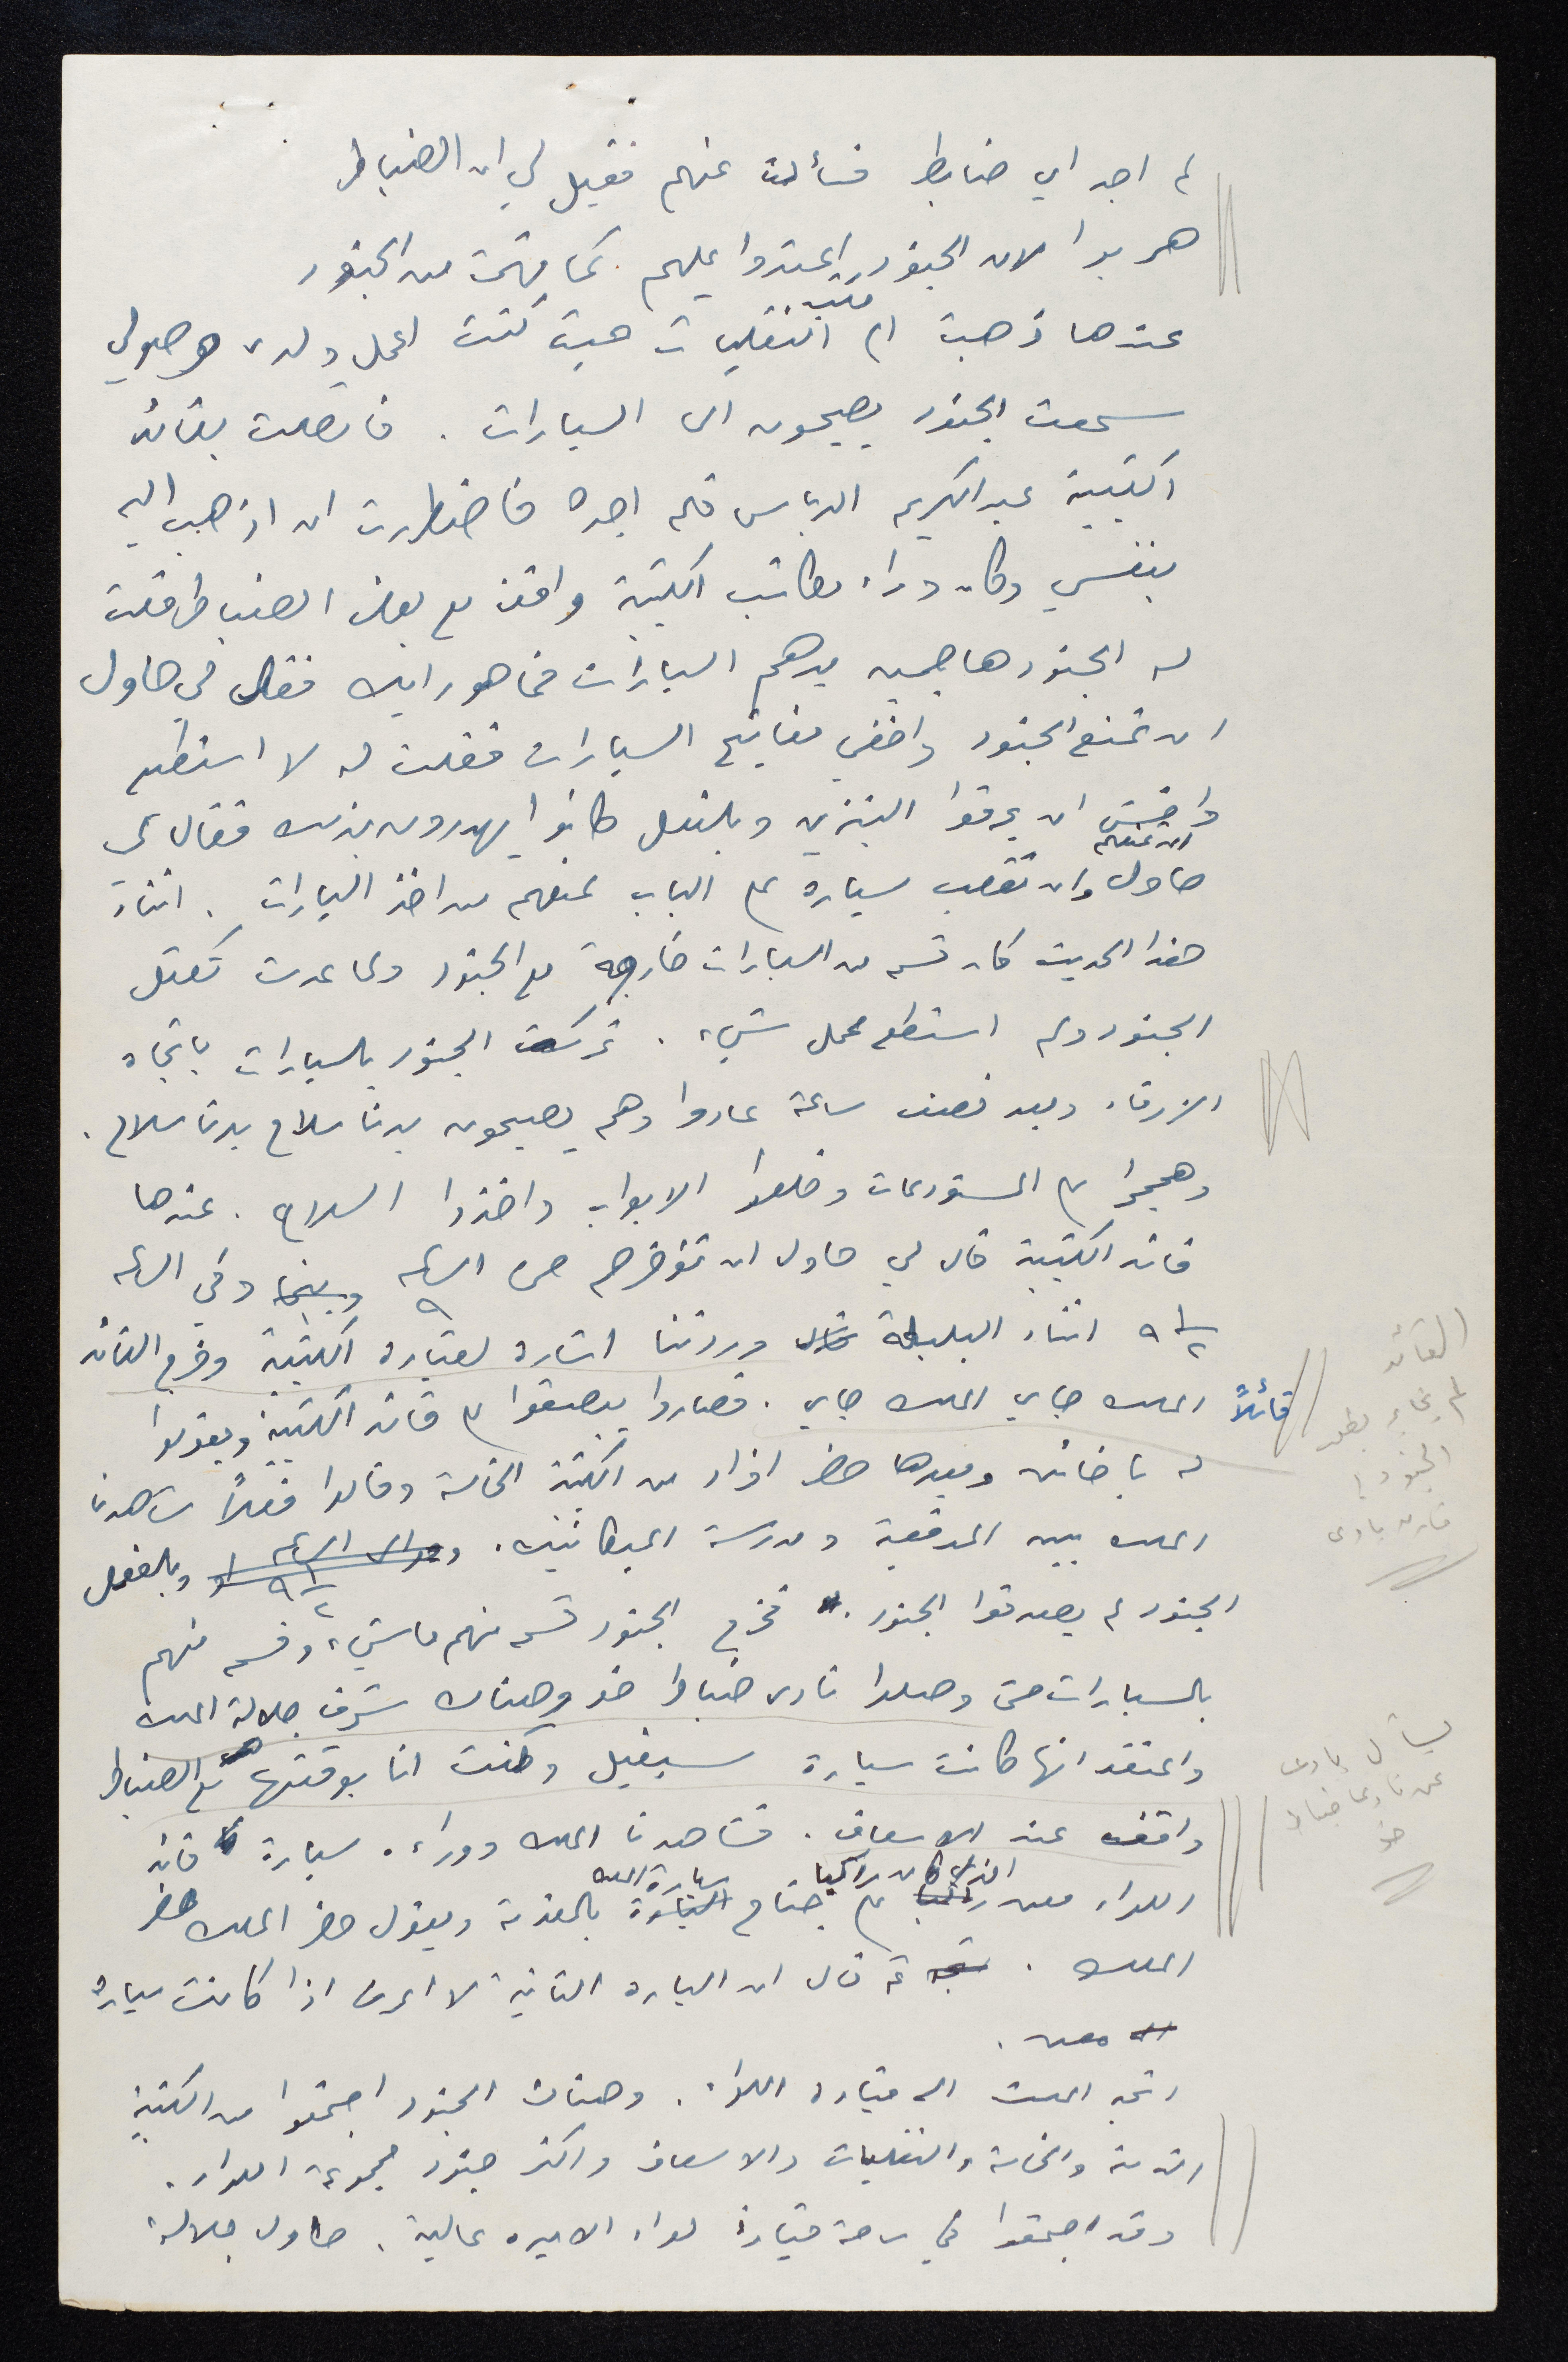 لم اجد اي ضابط فسألت عنهم فقيل لي ان الضباط
هربوا لان الجنود اعتدوا عليهم. كما فهمت من الجنود
عندها ذهبت الى مكتب النقليات حيث كنت اعمل ولدى وصولي
سمعت الجنود يصيحون الى السيارات. فاتصلت بقائد
الكتيبة عبدالكريم الدباس فلم اجده فاضطررت ان اذهب اليه
بنفسي وكان وراء مكاتب الكتيبة واقف مع بعض الضباط فقلت
له الجنود هاجمين بدهم السيارات فما هو رايك فقال لي حاول
ان تمنع الجنود واخفي مفاتيح السيارات فقلت له لا استطيع
واخشى ان يحرقوا البنزين وبالفعل كانوا يهددون بذلك فقال لي
حاول ان تمنعهم وان تقلب سيارة على الباب لمنعهم من اخذ السيارات. اثناء
هذا الحديث كان قسم من السيارات خارجة مع الجنود ولما عدت تكتل
الجنود ولم استطع عمل شيء. تركت الجنود بالسيارات باتجاه
الزرقاء وبعد نصف ساعة عادوا وهم يصيحون بدنا سلاح بدنا سلاح.
وهجموا على المستودعات وخلعوا الابواب واخذوا السلاح. عندها
قائد الكتيبة قال لي حاول ان تؤخرهم حتى الساعة ٩ وبينما وفي الساعة
٩ ١/٢ اثناء البلبلة وردتنا اشارة لقيادة الكتيبة وخرج القائد
قائلاً الملك جاي الملك جاي. فصاروا يبصقوا على قائد الكتيبة ويقولوا
له يا خائن وبعدها حضر افراد من الكتيبة الخامسة وقالوا فعلاً شاهدنا
الملك بين المدفعية ومدرسة الميكانيك. وبالفعل
الجنود لم يصدقوا الجنود. فخرج الجنود قسم منهم ماشيء وقسم منهم
بالسيارات حتى وصلوا نادي ضباط خو وهناك شرف جلالة الملك
واعتقد انها كانت سيارة سيفيل وكنت انا بوقتها مع الضباط
واقف عند الاسعاف. فشاهدنا الملك ووراءه سيارة قائد
اللواء معن الذي كان راكبا على جناح سيارة الملك بالمقدمة ويقول حضر الملك حضر
الملك. ثم قال ان السيارة الثانية لا اعرف اذا كانت سيارة
معن.
اتجه الملك الى قيادة اللواء. وهناك الجنود اجتمعوا من الكتيبة
الثامنة والخامسة والنقليات والاسعاف واكثر جنود مجموعة اللواء.
وقد اجتمعوا في ساحة قيادة لواء الاميره عالية. حاول جلالة
القائد
لم
الجنود
يسأل
عن نادي ضباط
خو